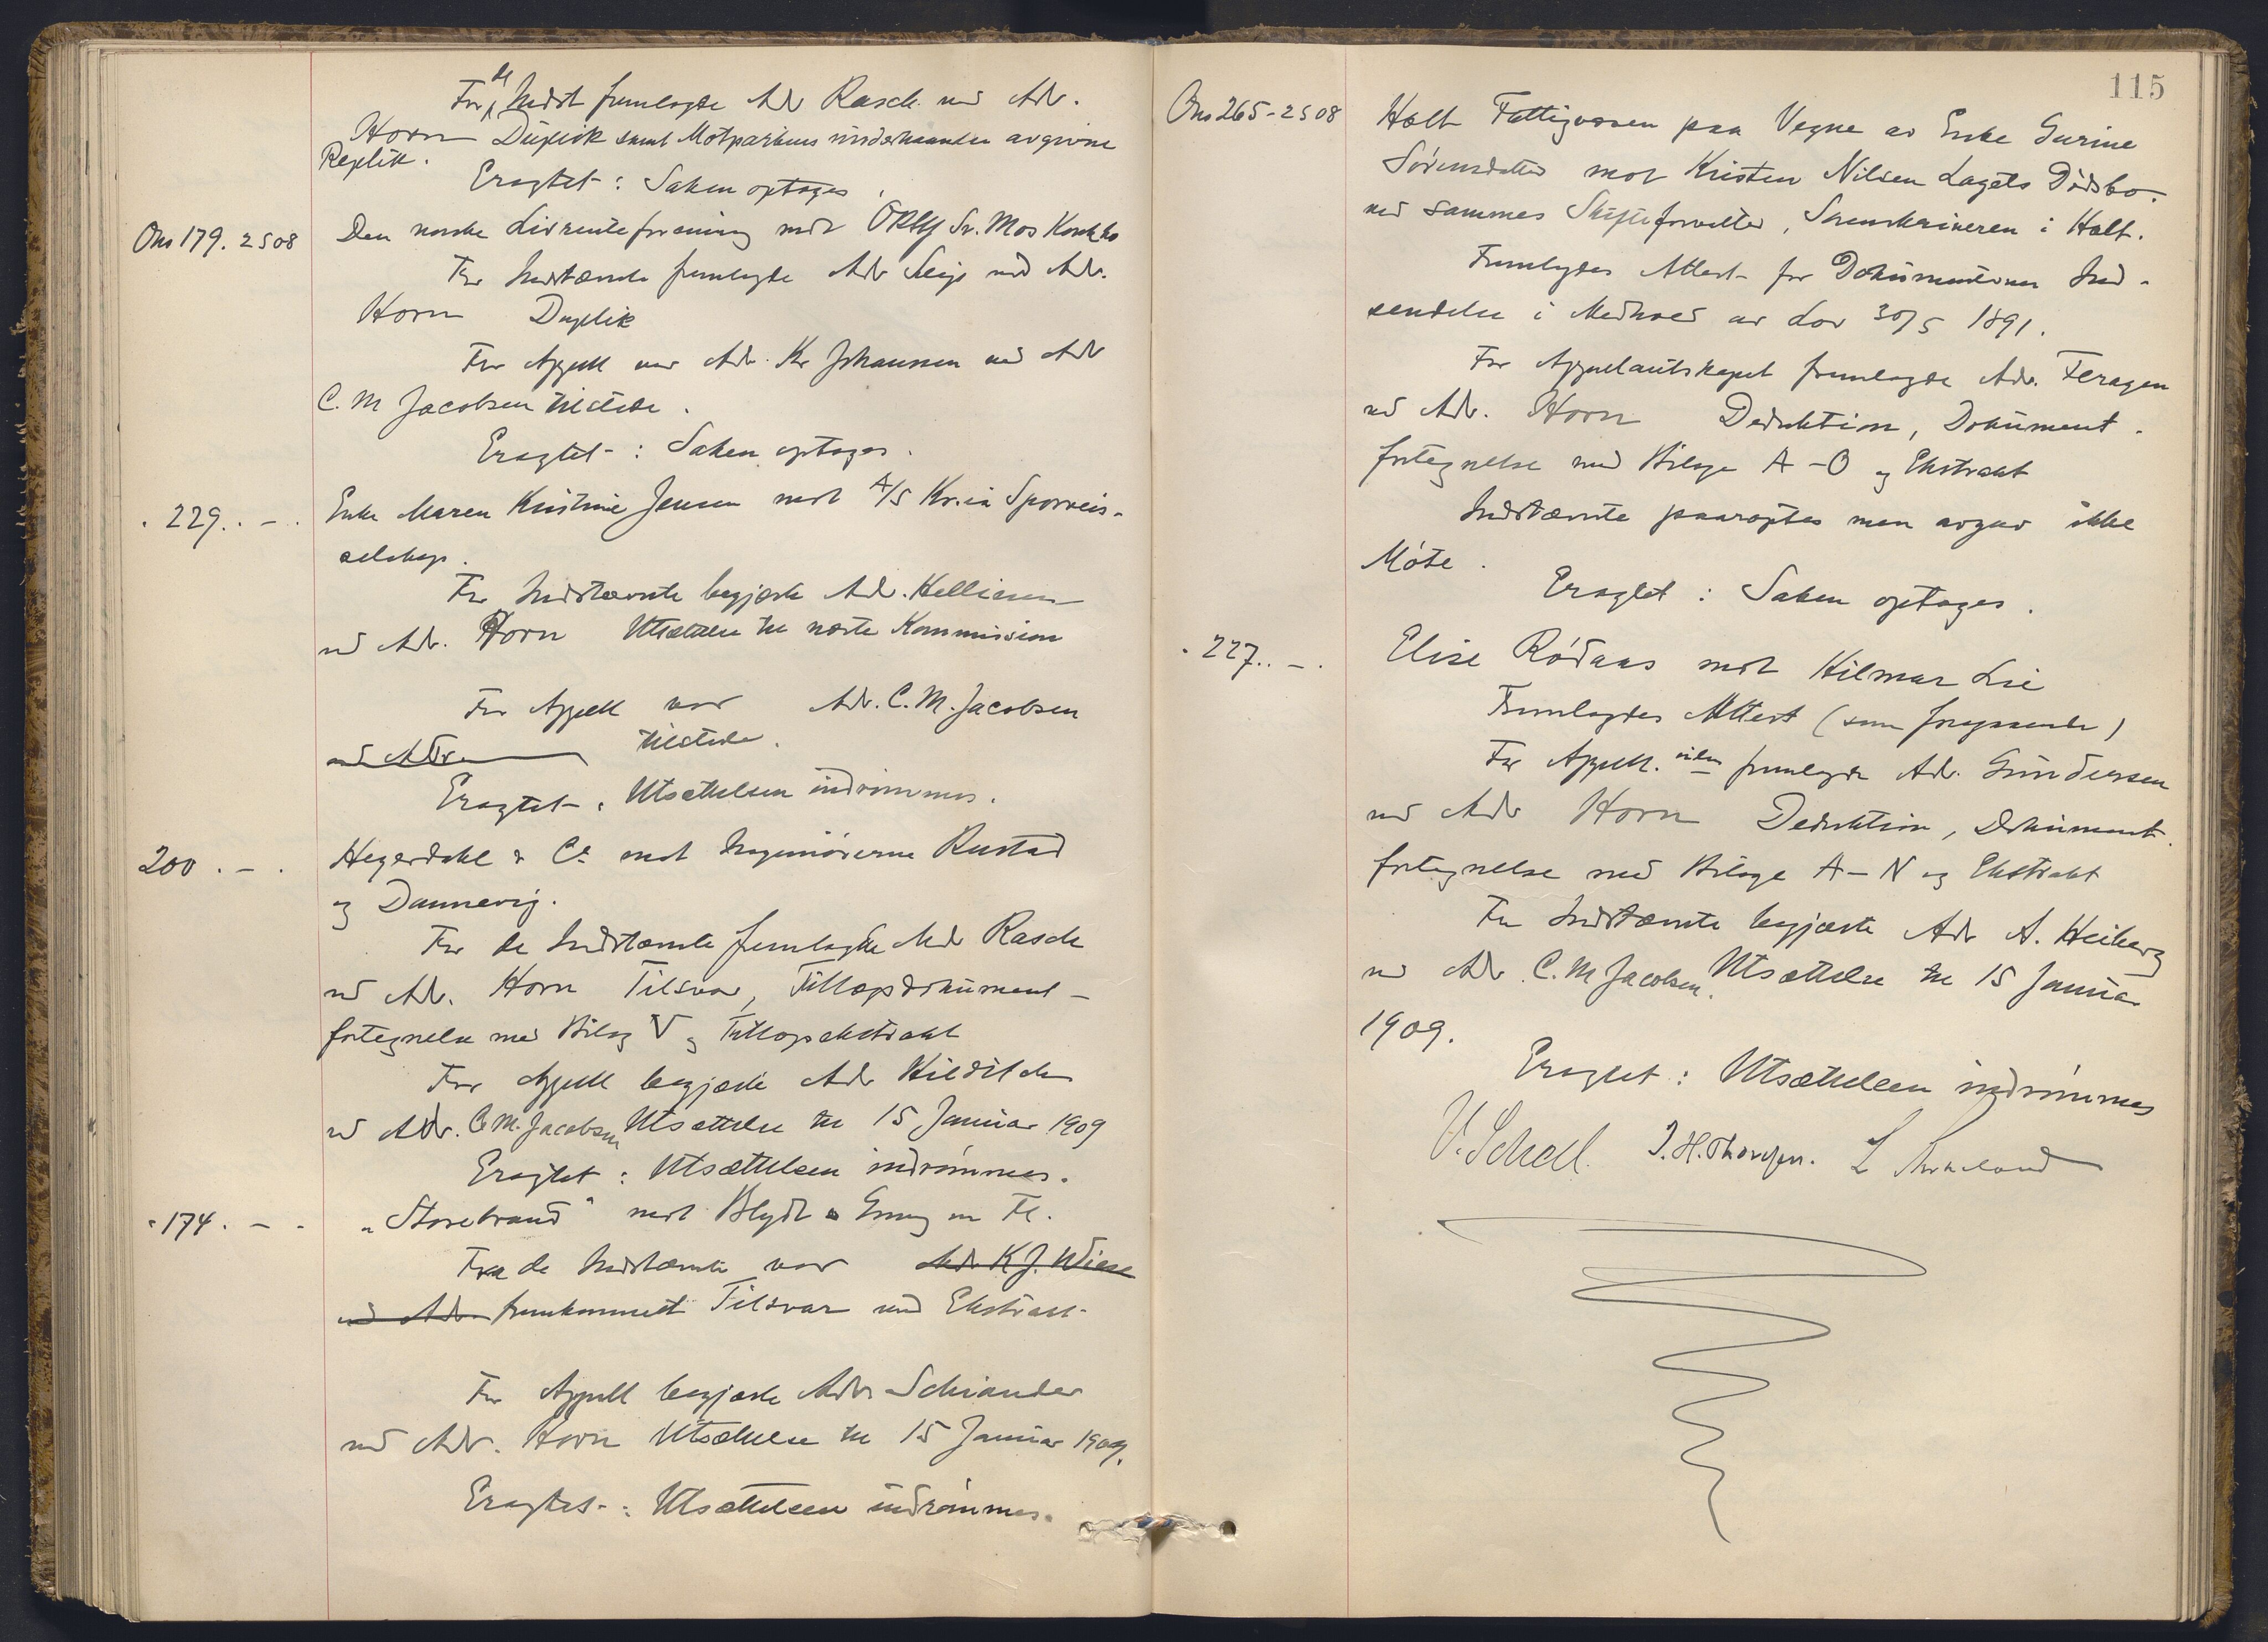 For de Indst fremlagde Adv Rasch ved Adv.
Horn Duplik samt Motpartens underhaanden avgivne
Replik.
Eragtet: Saken optages.
Ons 179. 2 S 08 Den norske Livrenteforening mot ORHJ Sv. Mos Konkbo
For Indstævnte fremlagde Adv Seip ved Adv.
Horn Duplik
For Appell var Adv. Kr Johanssen ved Adv
C. M Jacobsen tilstede.
Eragtet: Saken optages.
" 229. . - . Enke Maren Kristine Jensen mot A/S Kr.ia Sporveis-
selskap.
For Indstævnte begjærte Adv. Kelliesen
ved Adv. Horn Utsættelse til næste Kommission
For Appell var Adv. C. M. Jacobsen
ved Adv. tilstede.
Eragtet: Utsættelsen indrømmes.
200 . - . Hegerdahl & Co mot Ingeniørerne Rustad
og Dannevig.
For de Indstævnte fremlagde Adv Rasch
ved Adv. Horn Tilsvar, Tillægsdokument-
fortegnelse med Bilag V og Tillægsekstrakt
For Appell begjærte Adv Hilditch
ved Adv. C. M. Jacobsen Utsættelse til 15 Januar 1909
Eragtet: Utsættelsen indrømmes.
" 174 . - . "Storebrand" mot Blydt & Emny m Fl.
Fra de Indstævnte var Adv. K J. Wiese
ved Adv. fremkommet Tilsvar med Ekstrakt.
For Appell begjærte Adv. Schiander
ved Adv. Horn Utsættelse til 15 Januar 1909.
Eragtet: Utsættelsen indrømmes.
115
Ons 265 - 2 S 08 Holt Fattigvæsen paa Vegne av Enke Gurine
Sørensdatter mot Kristen Nilsen Lagets Dødsbo
ved sammes Skifteforvalter, Sorenskriveren i Holt.
Fremlagdes Attest for Dokumenternes Ind-
sendelse i Medhold av Lov 30/5 1891.
For Appellantskapet fremlagde Adv. Feragen
ved Adv. Horn Deduktion, Dokument-
fortegnelse med Bilage A - O og Ekstrakt
Indstævnte paaroptes men avgav ikke
Møte.
Eragtet: Saken optages.
" 227. . - . Elise Rødaas mot Hilmar Lie
Fremlagdes Attest (som foregaaende)
For Appell. inden fremlagde Adv. Gundersen
ved Adv Horn Deduktion, Dokument-
fortegnelse med Bilage A - N og Ekstrakt
For Indstævnte begjærte Adv A. Heiberg
ved Adv. C. M Jacobsen. Utsættelse til 15 Januar
1909.
Eragtet: Utsættelsen indrømmes
V. Schell. J. H. Thoresen.